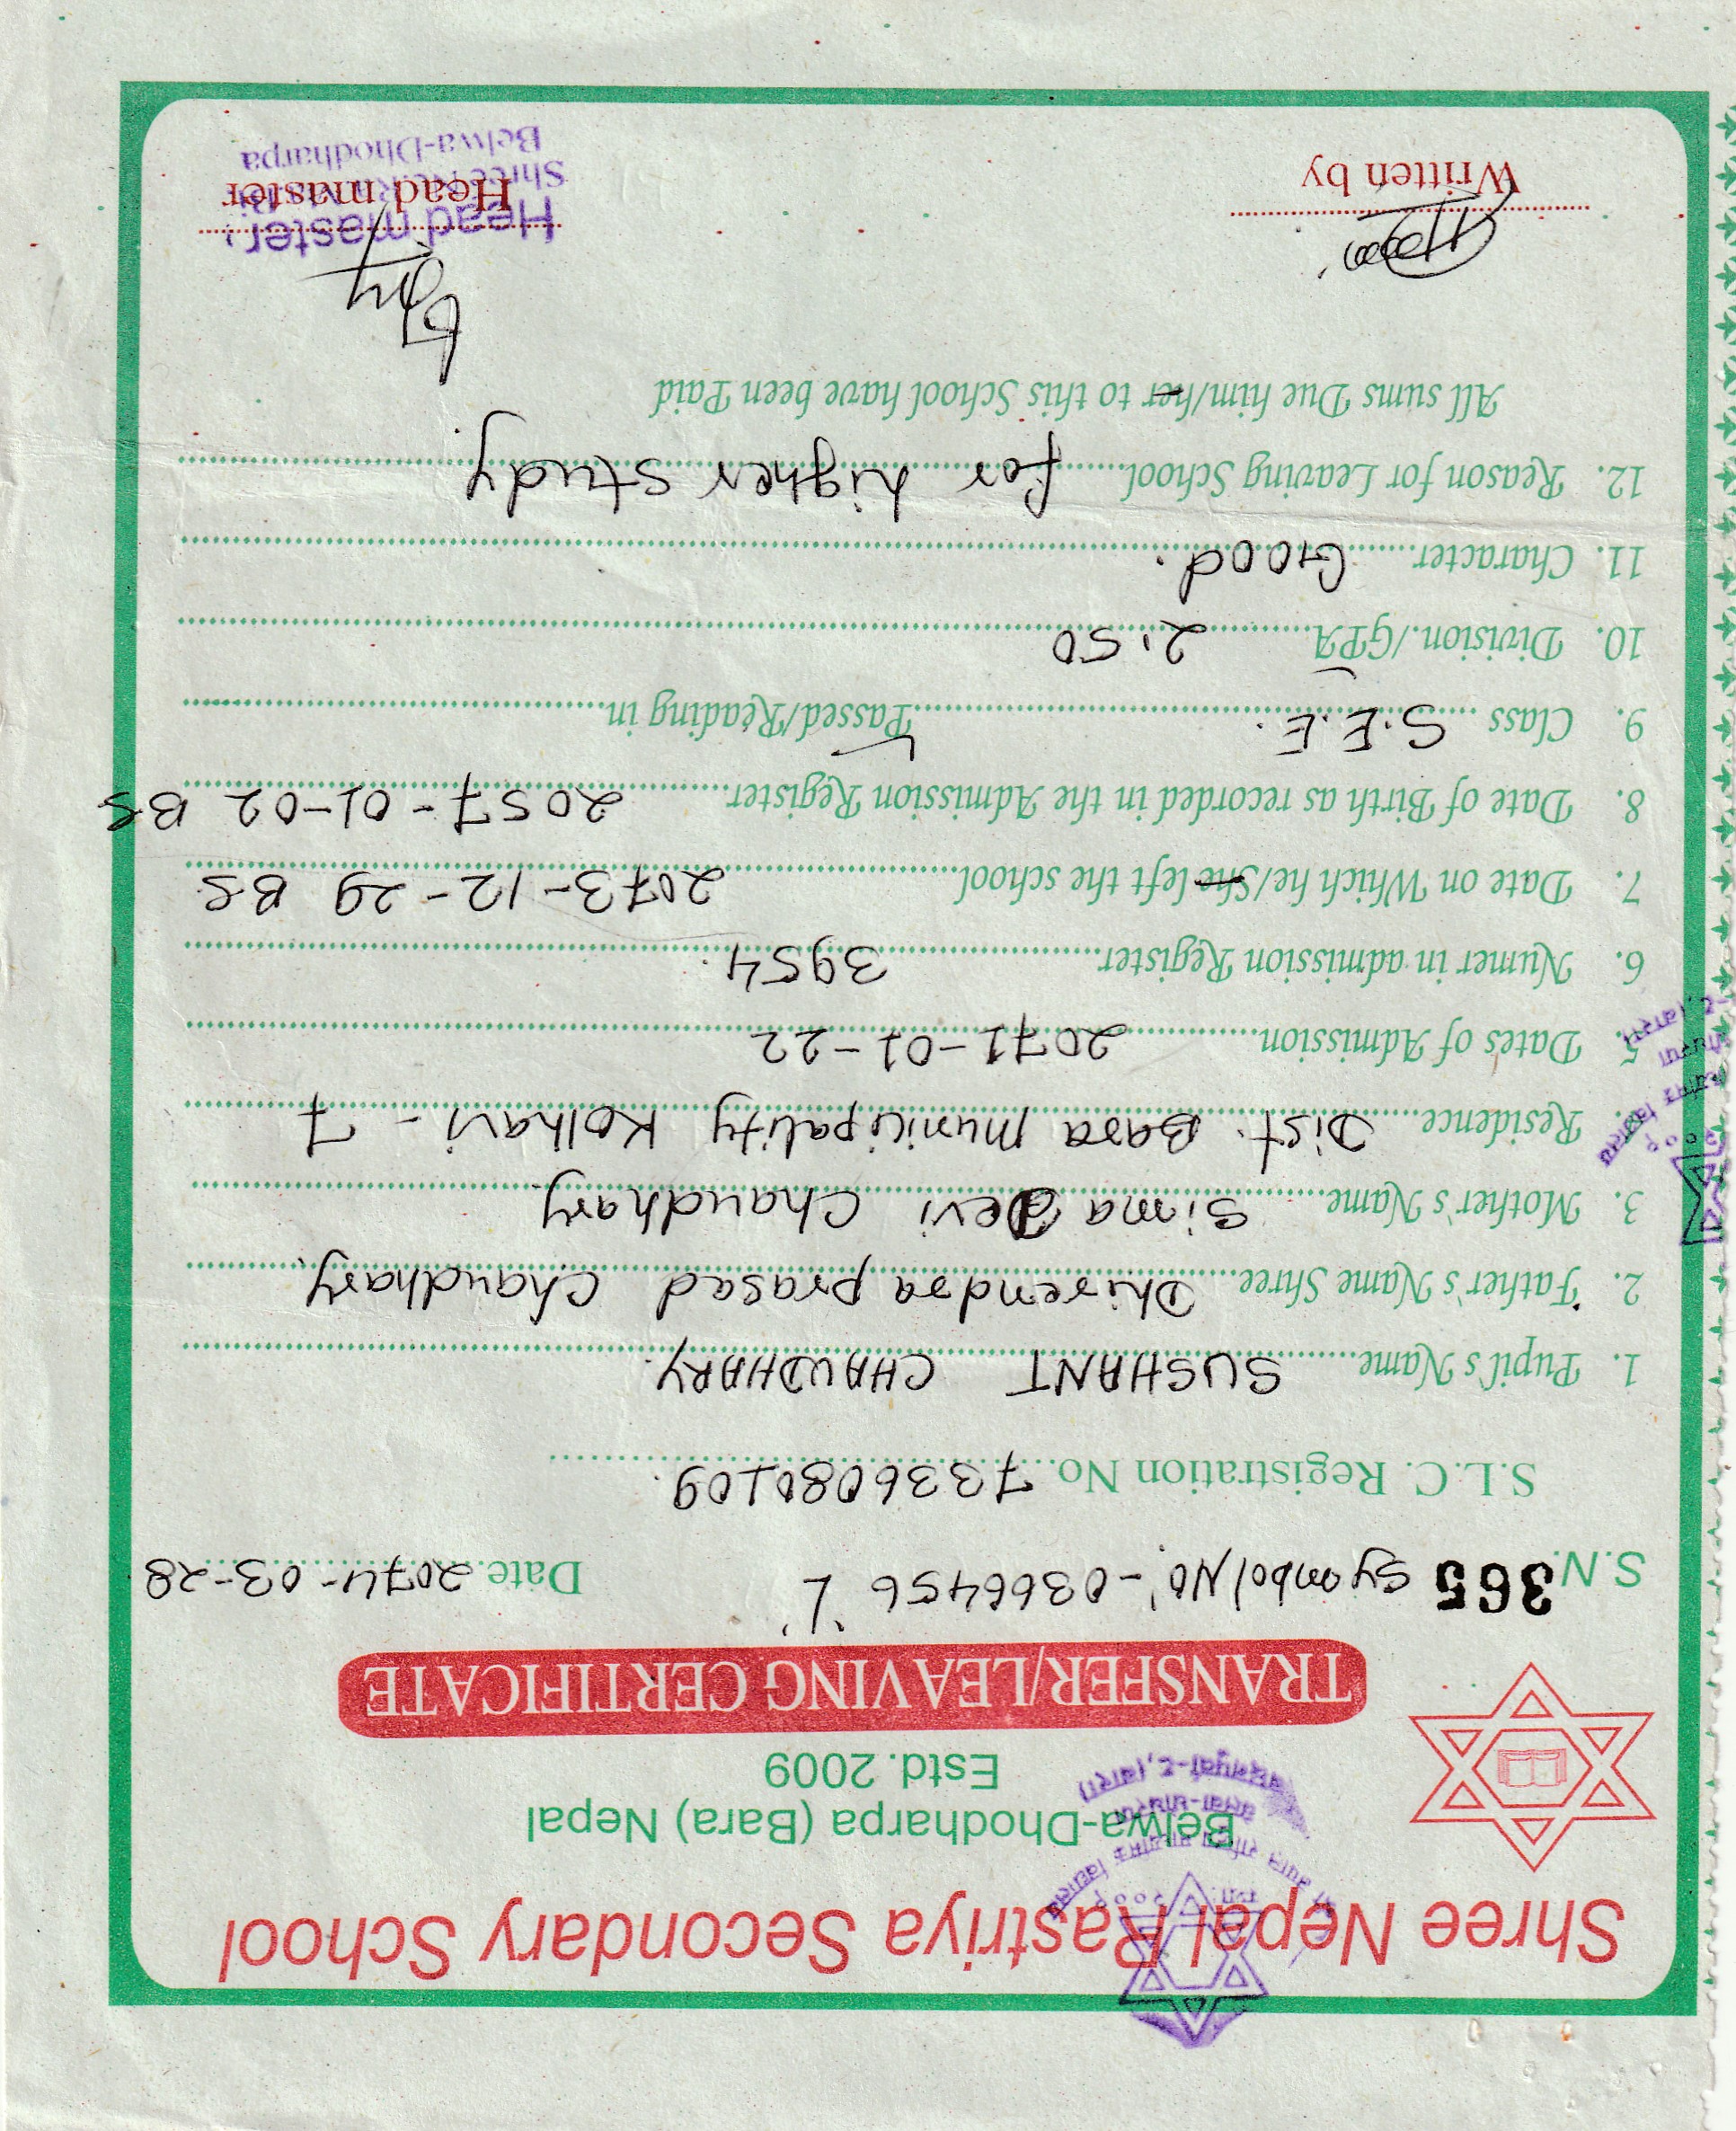 Shree Nepal Rastriya Secondary School
Belwa-Dhodharpa (Bara) Nepal
Estd. 2009
TRANSFER/LEAVING CERTIFICATE
S.N. 365 Symbol No.-0366456 'L' Date 2074-03-28
S.L.C. Registration No. 7336080109.
1. Pupil's Name SUSHANT CHAUDHARY.
2. Father's Name Shree Dhirendra prasad Chaudhary.
3. Mother's Name Sima Devi Chaudhary.
Residence Dist. Bara Municipality Kolhavi - 7
5. Dates of Admission 2071-01-22
6. Numer in admission Register 3954.
7. Date on Which he/She left the school 2073-12-29 BS.
8. Date of Birth as recorded in the Admission Register 2057-01-02 BS
9. Class S.E.E. Passed/Reading in
10. Division./GPA 2.50
11. Character Good.
12. Reason for Leaving School for higher study.
All sums Due him/her to this School have been Paid
Written by
Head master
Head master
Belwa-Dhodharpa